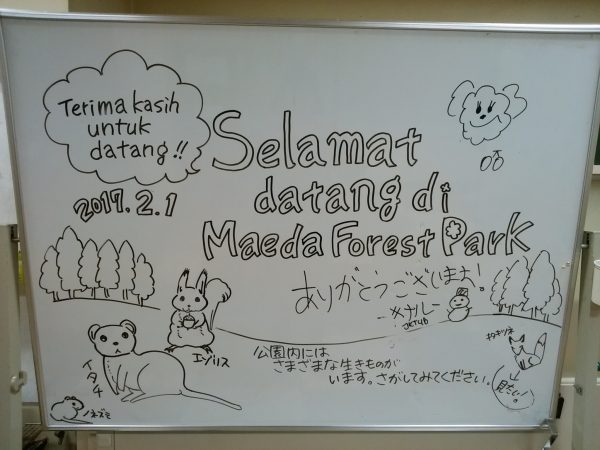 Terima kasih
untuk
datang!!
2017.2.1
Selamat
datang di
Maeda Forest Park
ありがとうございます!
エゾリス
イタチ
ノネズミ
公園内には
さまざまな生きものが
います。さがしてみてください。
キタキツネ
見たい!